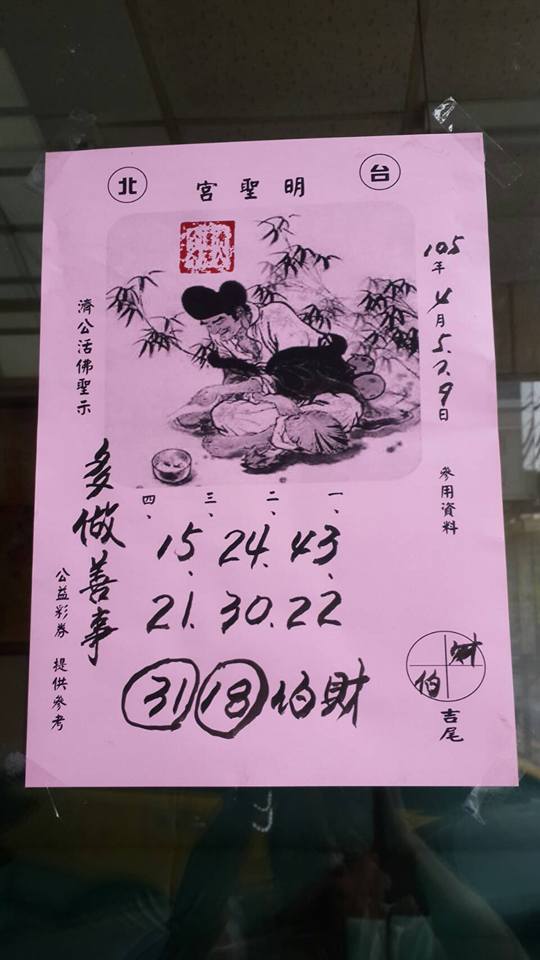 台 明聖宮 北
105年4月5.7.9日 參用資料
濟公活佛聖示
一、二、三、四、
15、24、43、
21.30.22
31 18 伯財
多做善事
公益彩券 提供參考
財
伯
吉尾